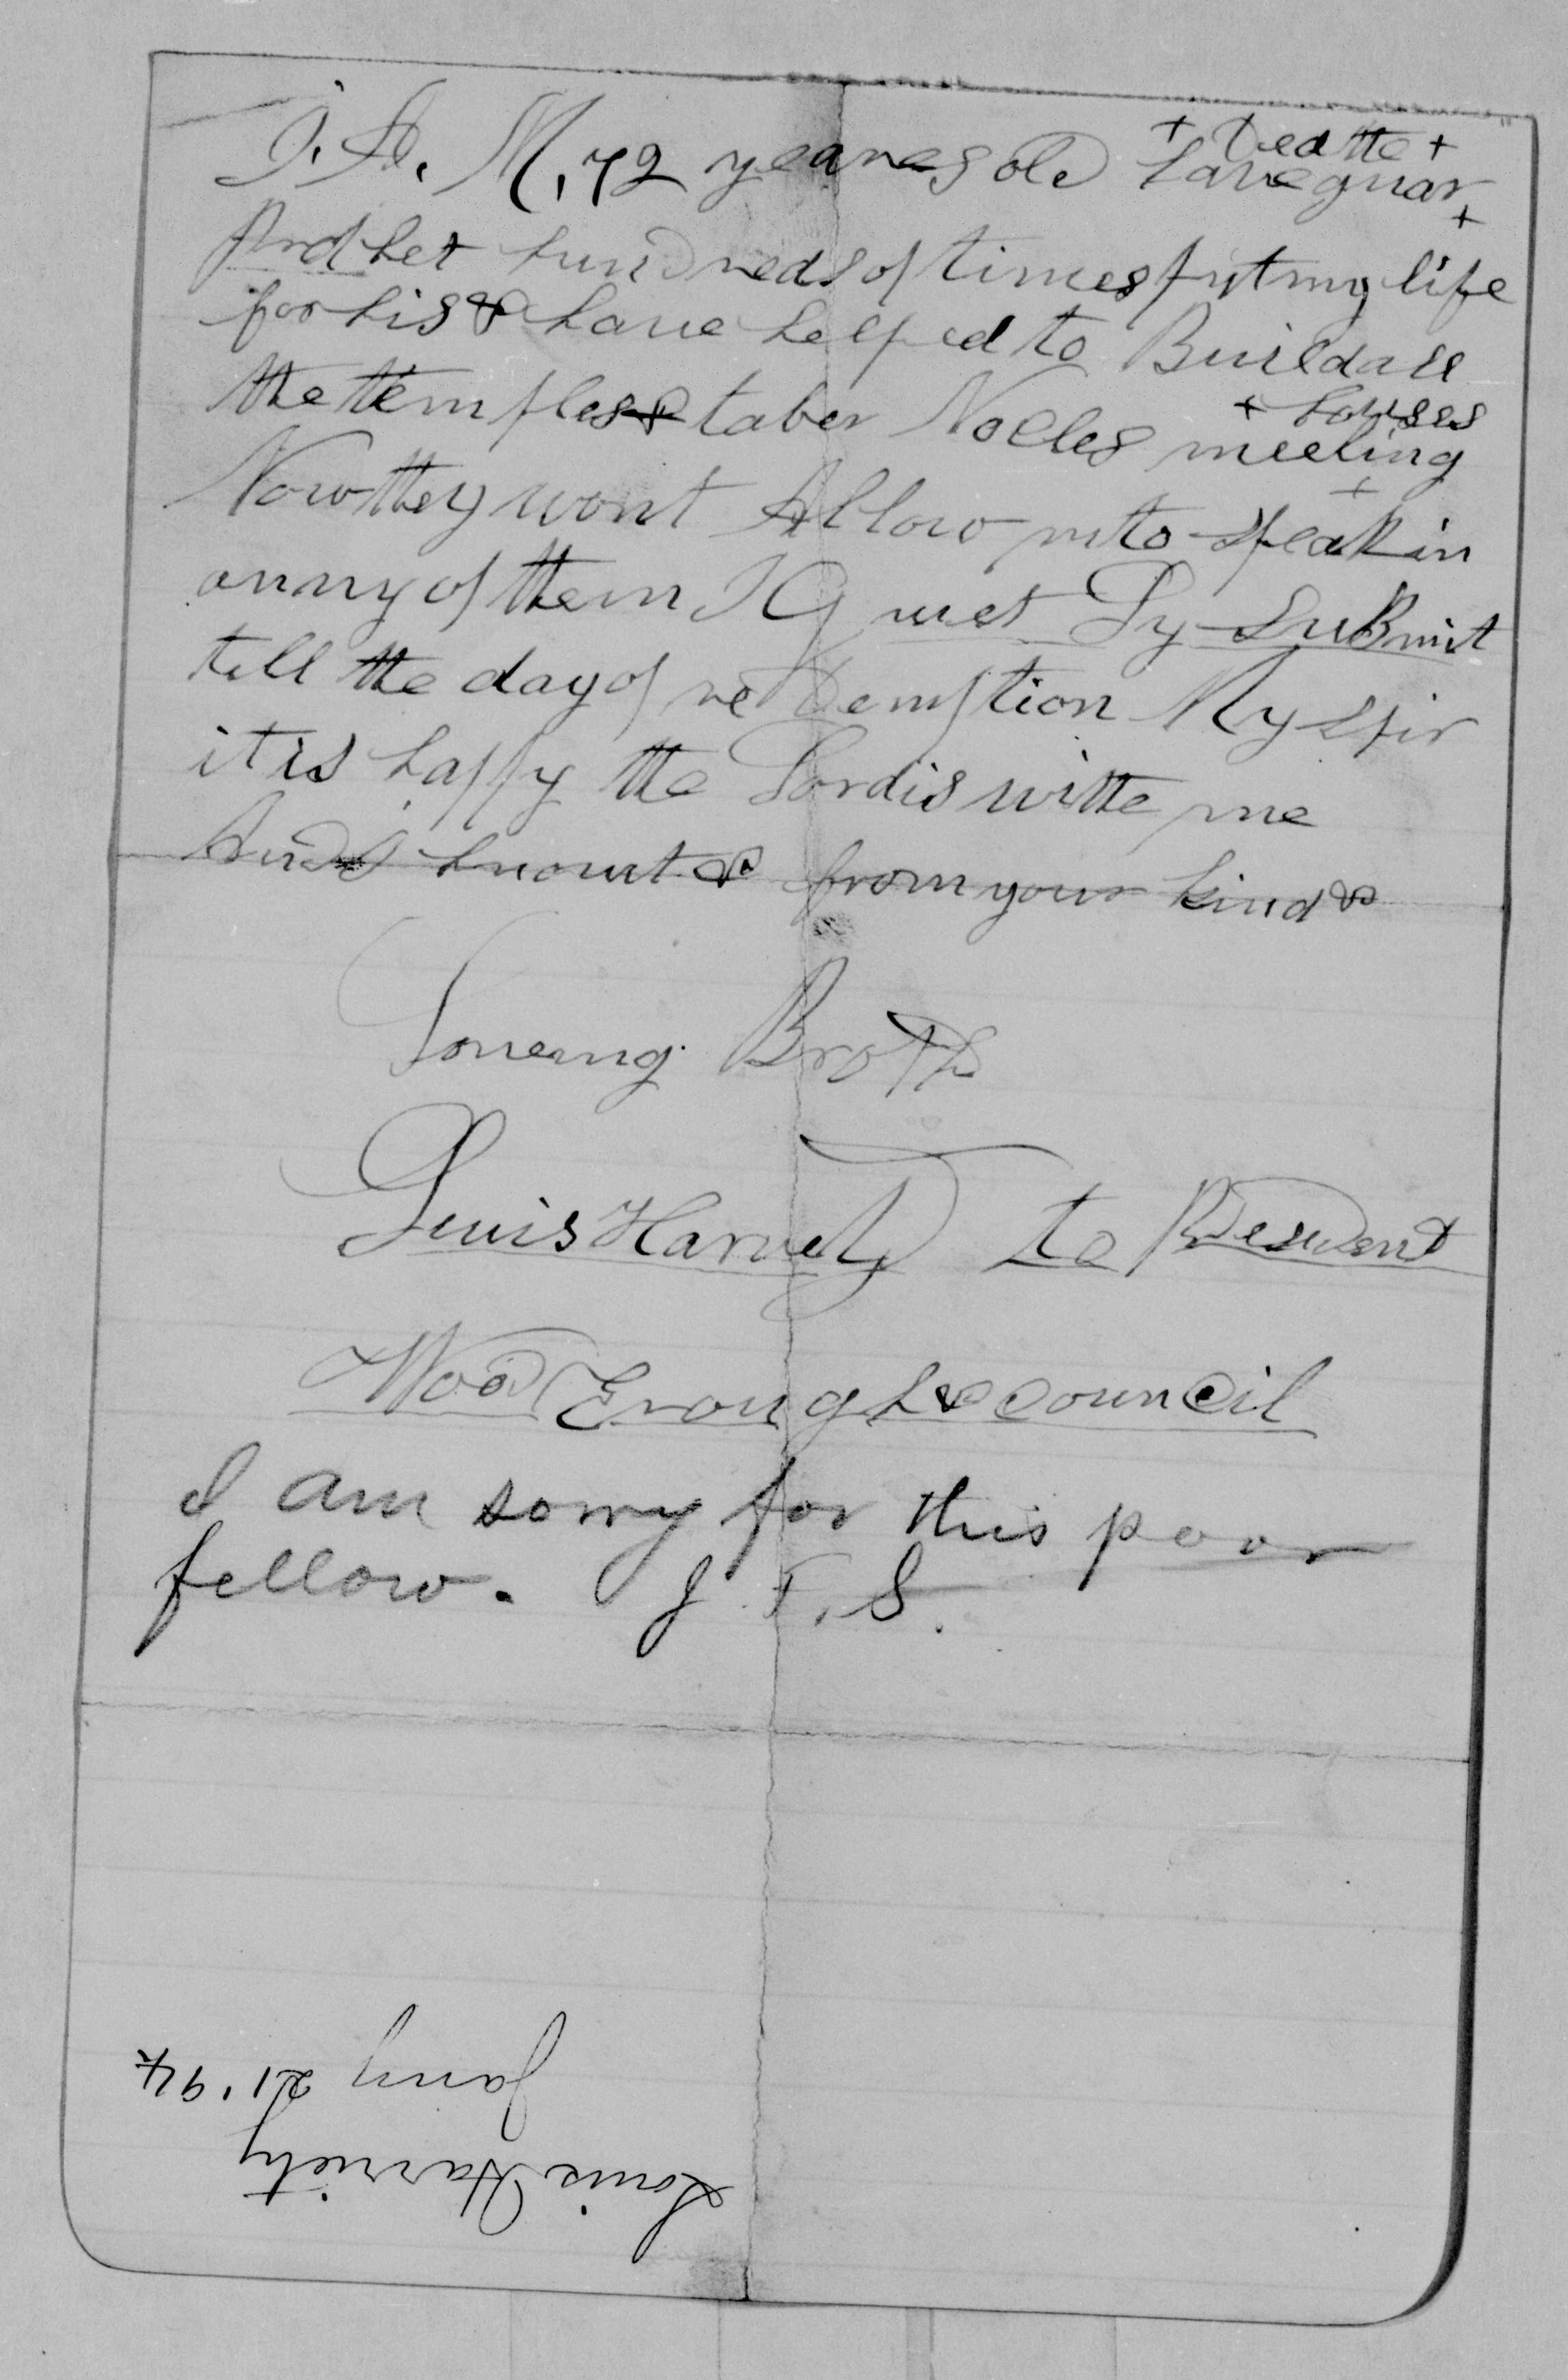 I. A. M, 72 yeares old have guar
+ + ded the +
Prophet hundreds of times put my life +
for his & have helped to Build all
the temples & taber Nocles meeting
+ houses
Now they wont Allow m to speak in +
anny of them I Q uiet Ly SuBmit
till the day of re Demption My spir
it is happy the Lord is withe me
And I know it & from your kind &
Loveing Broth
Luis Harvety to President
Wood Erough & council
I am sorry for this poor
fellow. J. F. S.
Louis Harriety
Jany 21 '94